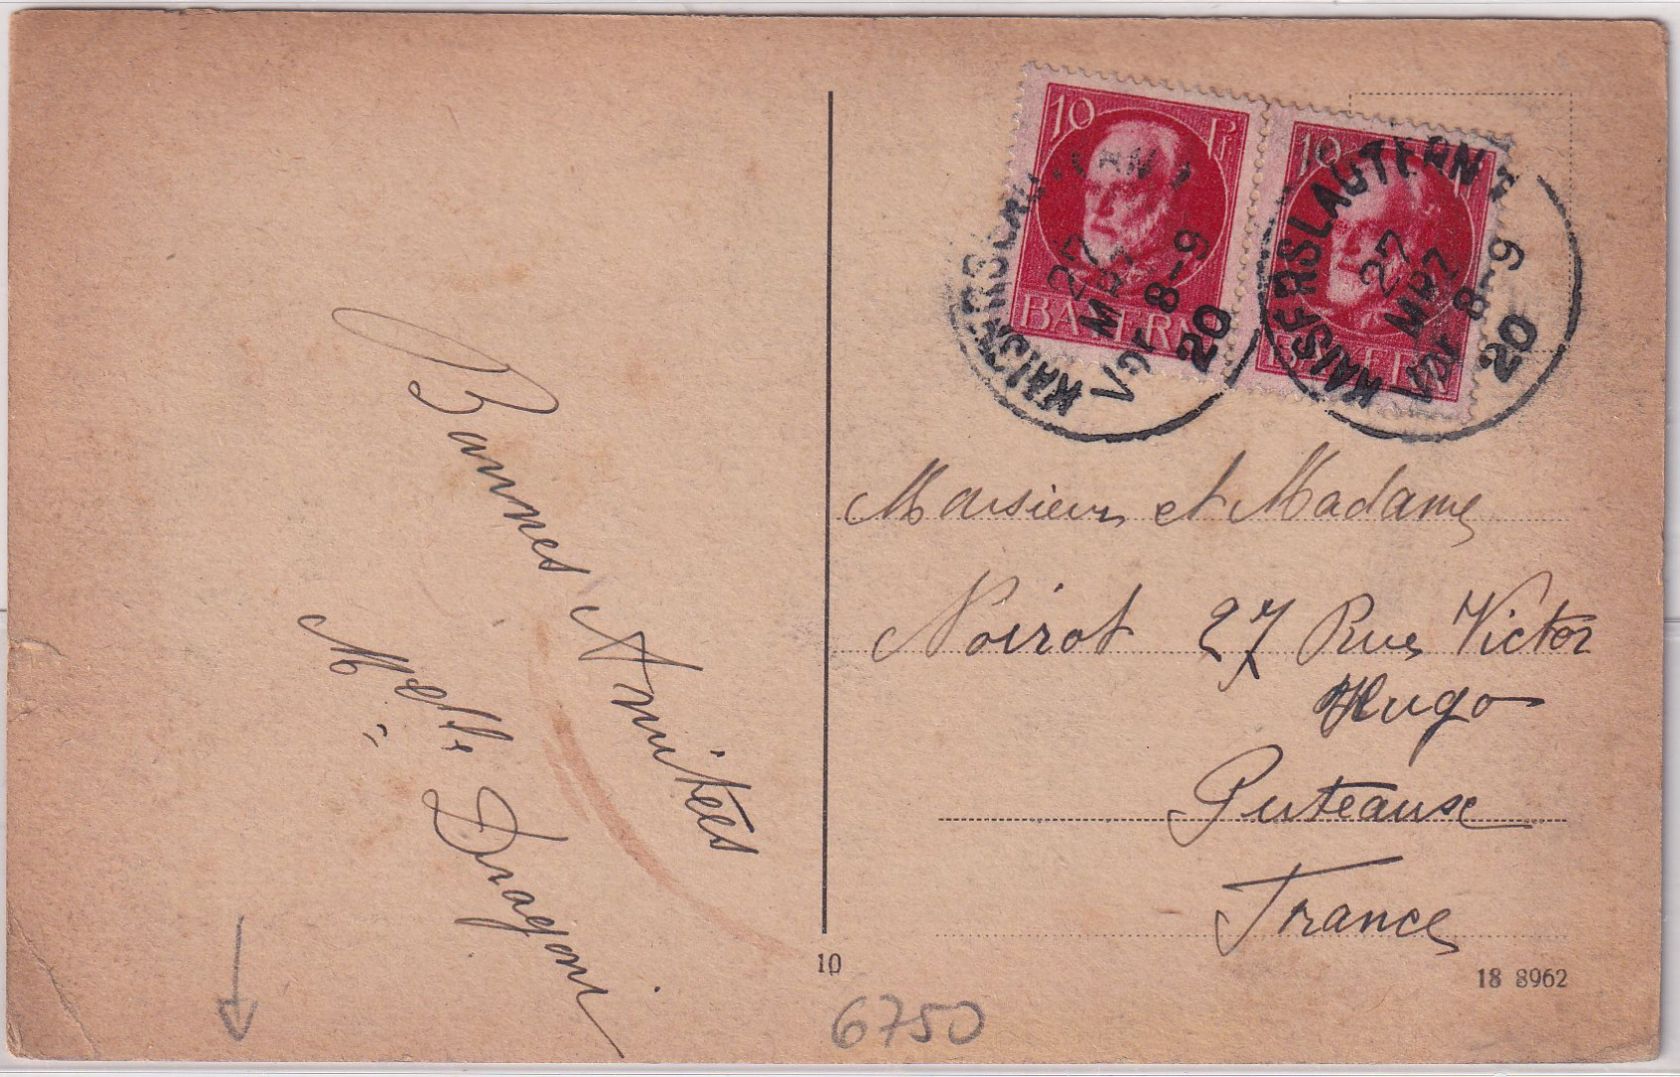 Bonnes Amitiées
Melle Dragoni
10 Pf
BAYERN
10
BAYERN
KAISERSLAUTERN
27
MRZ
Vor 8-9
20
KAISERSLAUTERN
27
MRZ
Vor 8-9
20
Monsieur et Madame
Noirot 27 Rue Victor
Hugo
Puteaux
France
10
18 8962
6750